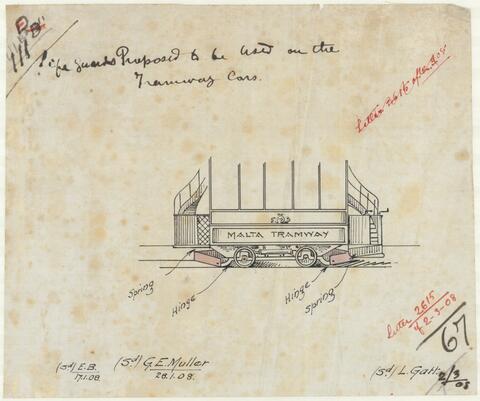 Life guards Proposed to be used on the
Tramway Cars.
MALTA TRAMWAY
Spring
Hinge
Hinge
Spring
Letter 2615
of 2-3-08
67
2/3
08
(Sd) E.B.
17.1.08.
(Sd) G.E. Muller
28.1.08.
(Sd) L. Gatt.